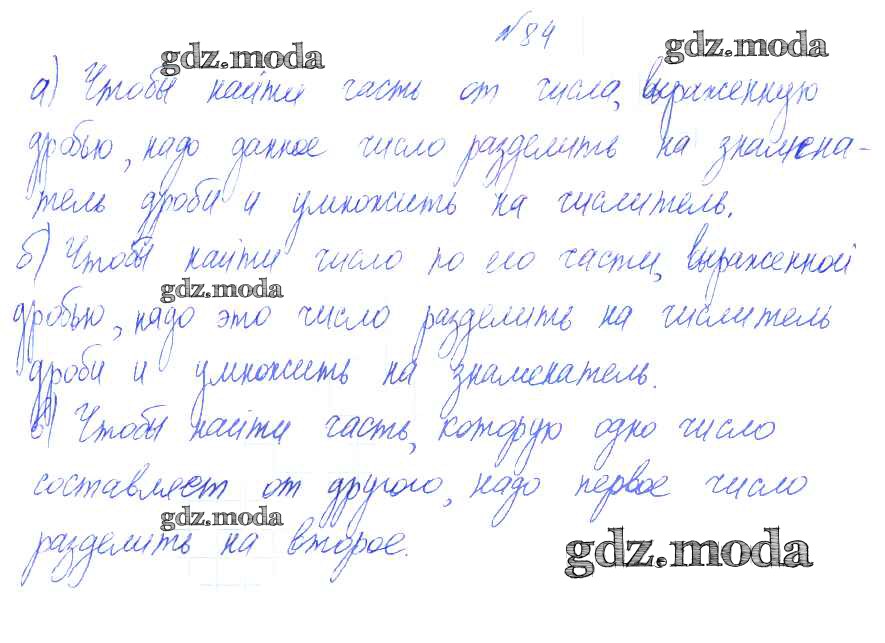 №84
gdz.moda gdz.moda
а) Чтобы найти часть от числа, выраженную
дробью, надо данное число разделить на знамена-
тель дроби и умножить на числитель.
б) Чтобы найти число по его части, выраженной
gdz.moda
дробью, надо это число разделить на числитель
дроби и умножить на знаменатель.
в) Чтобы найти часть, которую одно число
составляет от другого, надо первое число
gdz.moda
разделить на второе.
gdz.moda